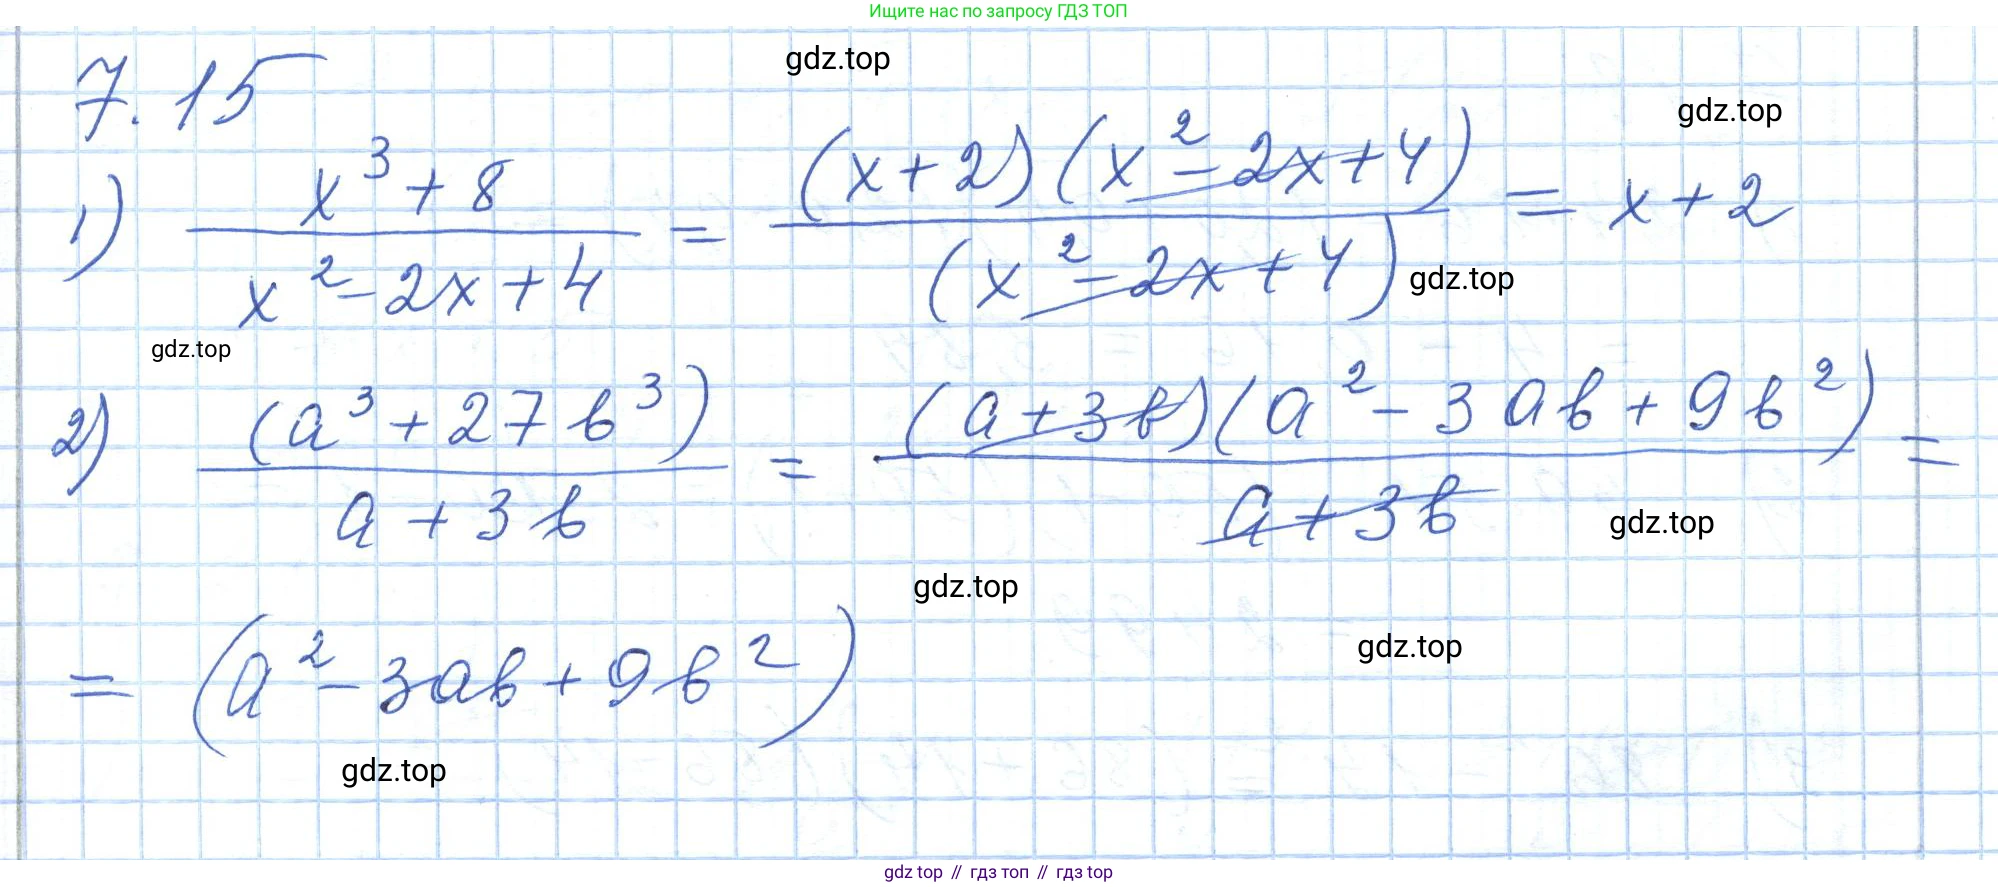 Ищите нас по запросу ГДЗ ТОП
gdz.top
7.15
gdz.top
1) (x³ + 8)/(x² - 2x + 4) = ((x + 2)(x² - 2x + 4))/((x² - 2x + 4)) = x + 2
gdz.top
gdz.top
2) ((a³ + 27b³))/(a + 3b) = ((a + 3b)(a² - 3ab + 9b²))/(a + 3b) =
gdz.top
gdz.top
= (a² - 3ab + 9b²)
gdz.top
gdz.top
gdz top // гдз топ // гдз top